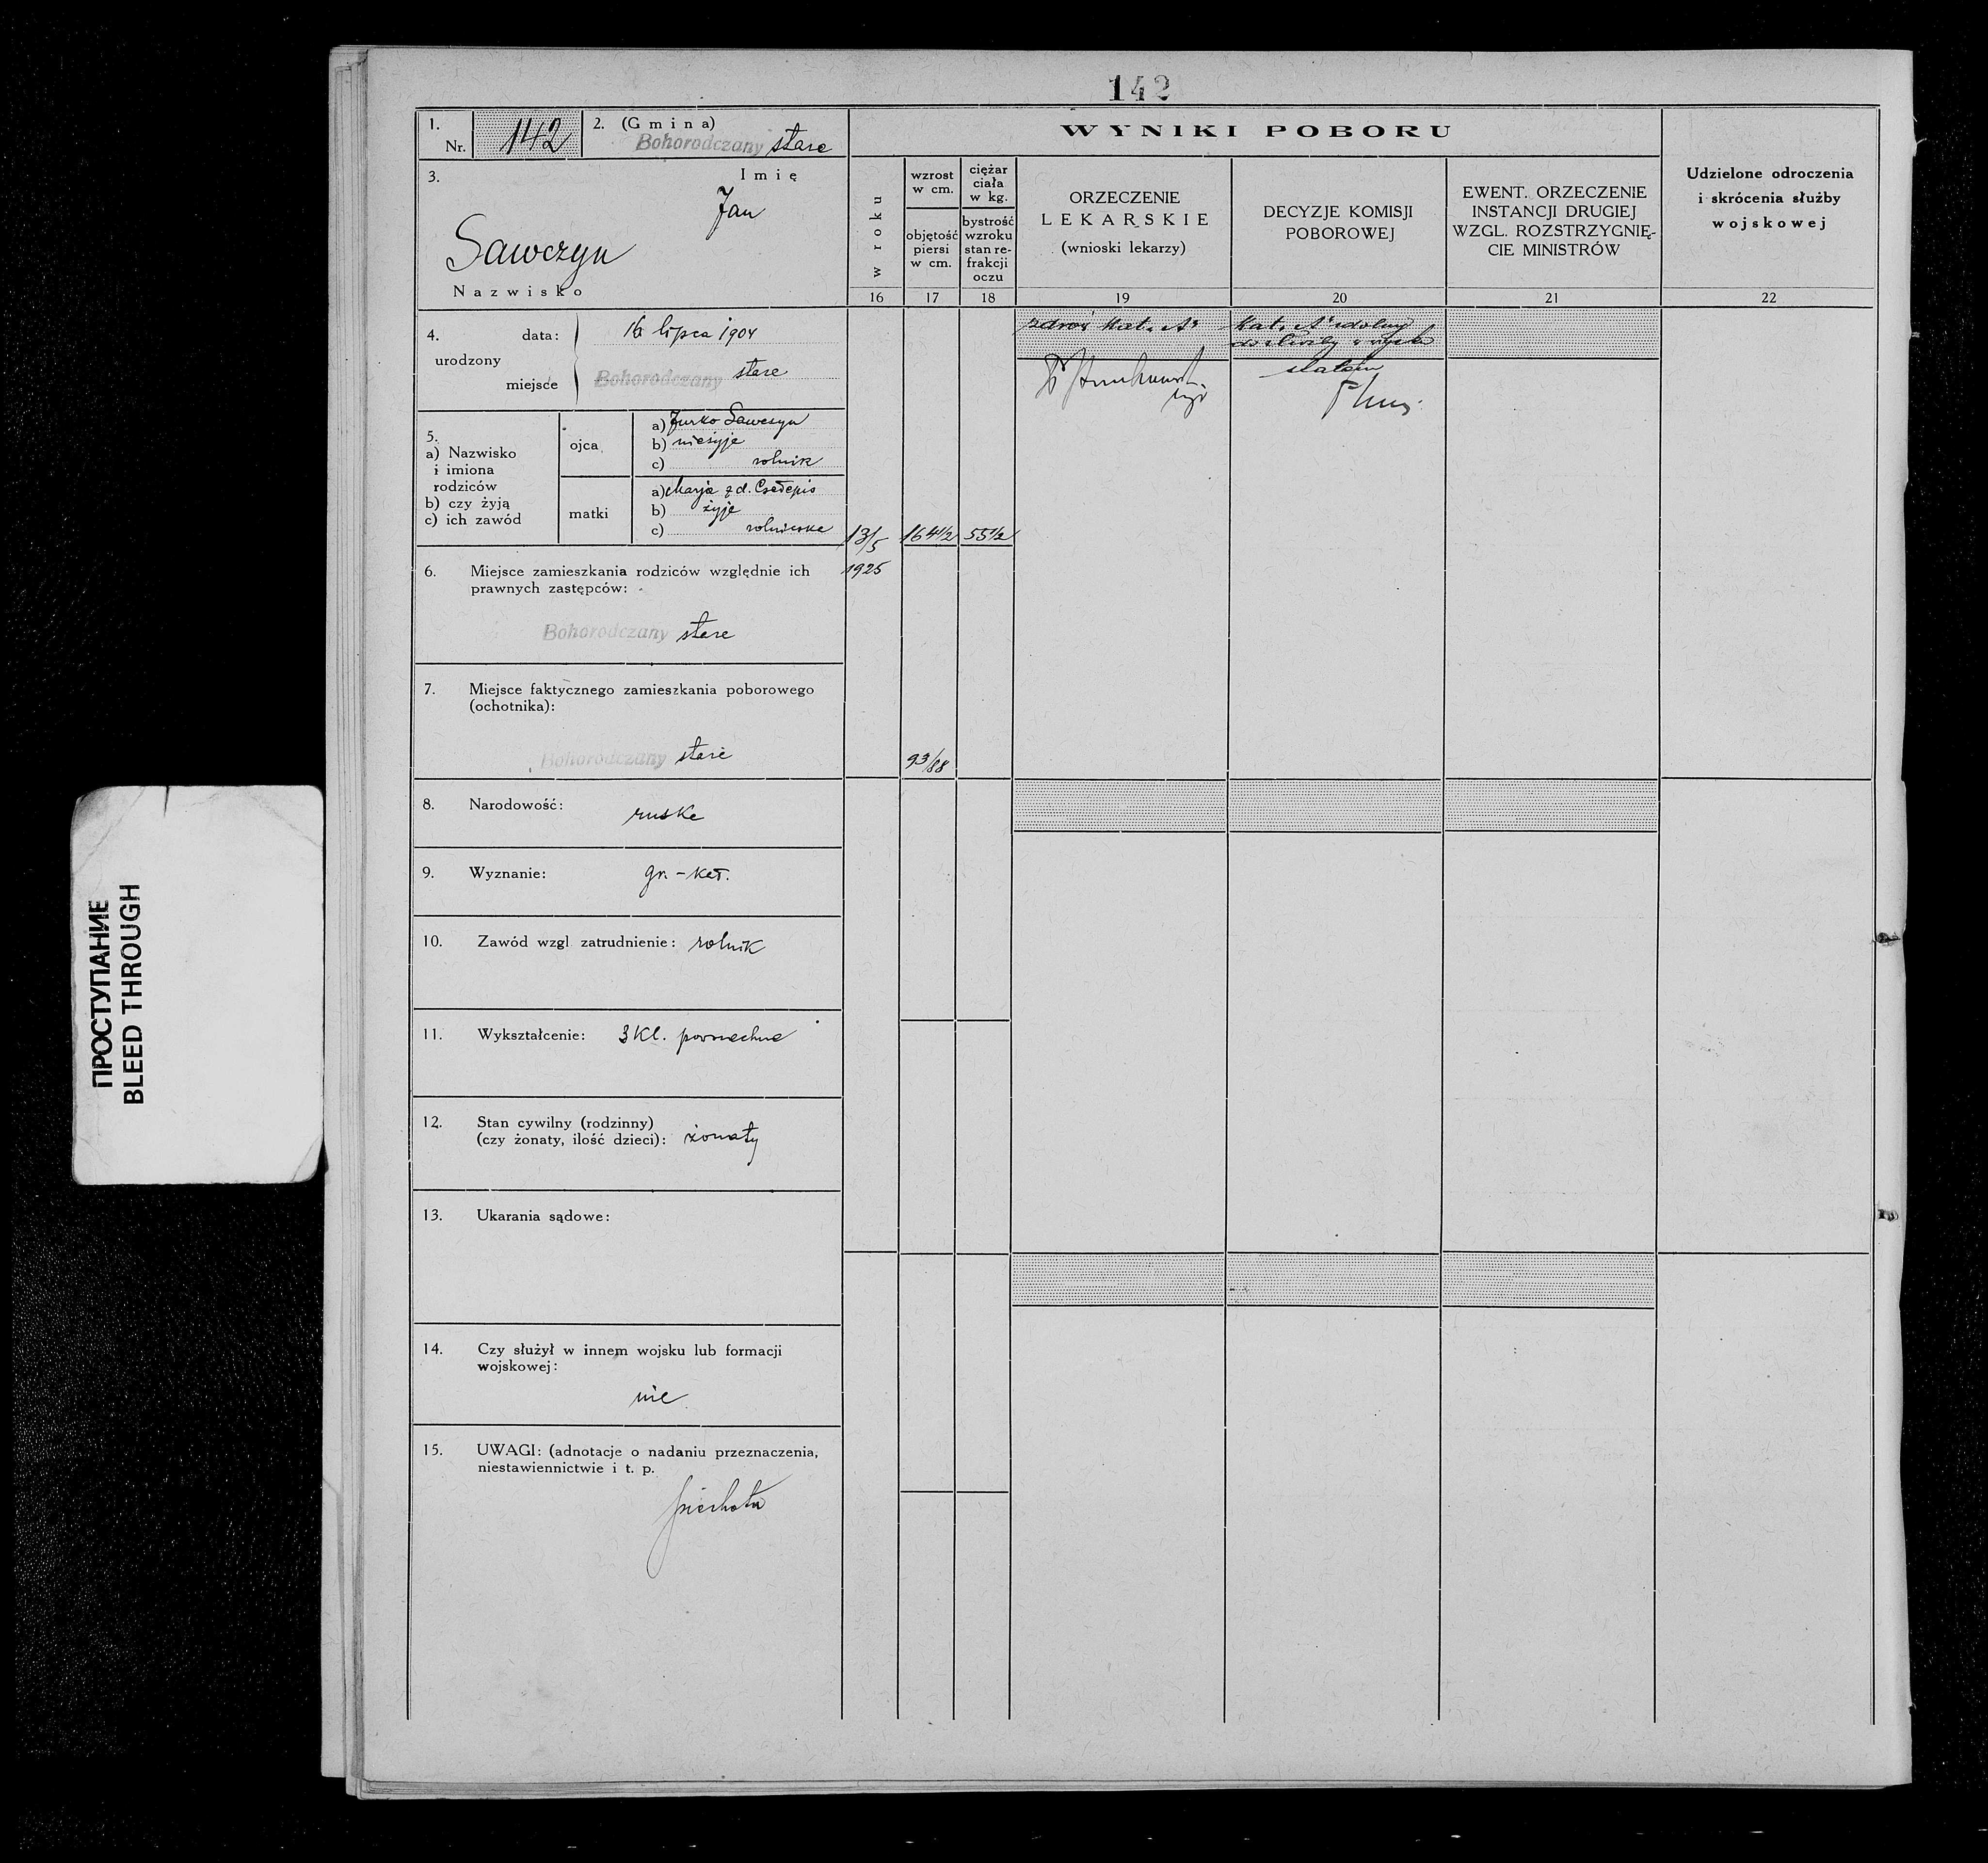 142
1.
Nr. 142
2. (Gmina)
Bohorodczany stare
3. Imię
Jan
Sawczyn
Nazwisko
4. urodzony
data: 16 lipca 1904
miejsce Bohorodczany stare
5.
a) Nazwisko
i imiona
rodziców
b) czy żyją
c) ich zawód
ojca
a) Jurko Sawczyn
b) nieżyje
c) rolnik
matki
a) Marja z d.
b) żyje
c) rolniczka
6. Miejsce zamieszkania rodziców względnie ich
prawnych zastępców:
Bohorodczany stare
7. Miejsce faktycznego zamieszkania poborowego
(ochotnika):
Bohorodczany stare
8. Narodowość:
ruska
9. Wyznanie: gr.-kat.
10. Zawód wzgl zatrudnienie: rolnik
11. Wykształcenie: 3 Kl. powszechna
12. Stan cywilny (rodzinny)
(czy żonaty, ilość dzieci): żonaty
13. Ukarania sądowe:
14. Czy służył w innem wojsku lub formacji
wojskowej:
nie
15. UWAGI: (adnotacje o nadaniu przeznaczenia,
niestawiennictwie i t. p.
piechota
WYNIKI POBORU
w roku
16
wzrost
w cm.
objętość
piersi
w cm.
17
ciężar
ciała
w kg.
bystrość
wzroku
stan re-
frakcji
oczu
18
ORZECZENIE
LEKARSKIE
(wnioski lekarzy)
19
DECYZJE KOMISJI
POBOROWEJ
20
EWENT. ORZECZENIE
INSTANCJI DRUGIEJ
WZGL. ROZSTRZYGNIĘ-
CIE MINISTRÓW
21
Udzielone odroczenia
i skrócenia służby
wojskowej
22
13/5
1925
164 1/2
55 1/2
93/88
zdrów Kat. A
Kat. A zdolny
do służby w wojsku
stałem
ПРОСТУПАНИЕ
BLEED THROUGH